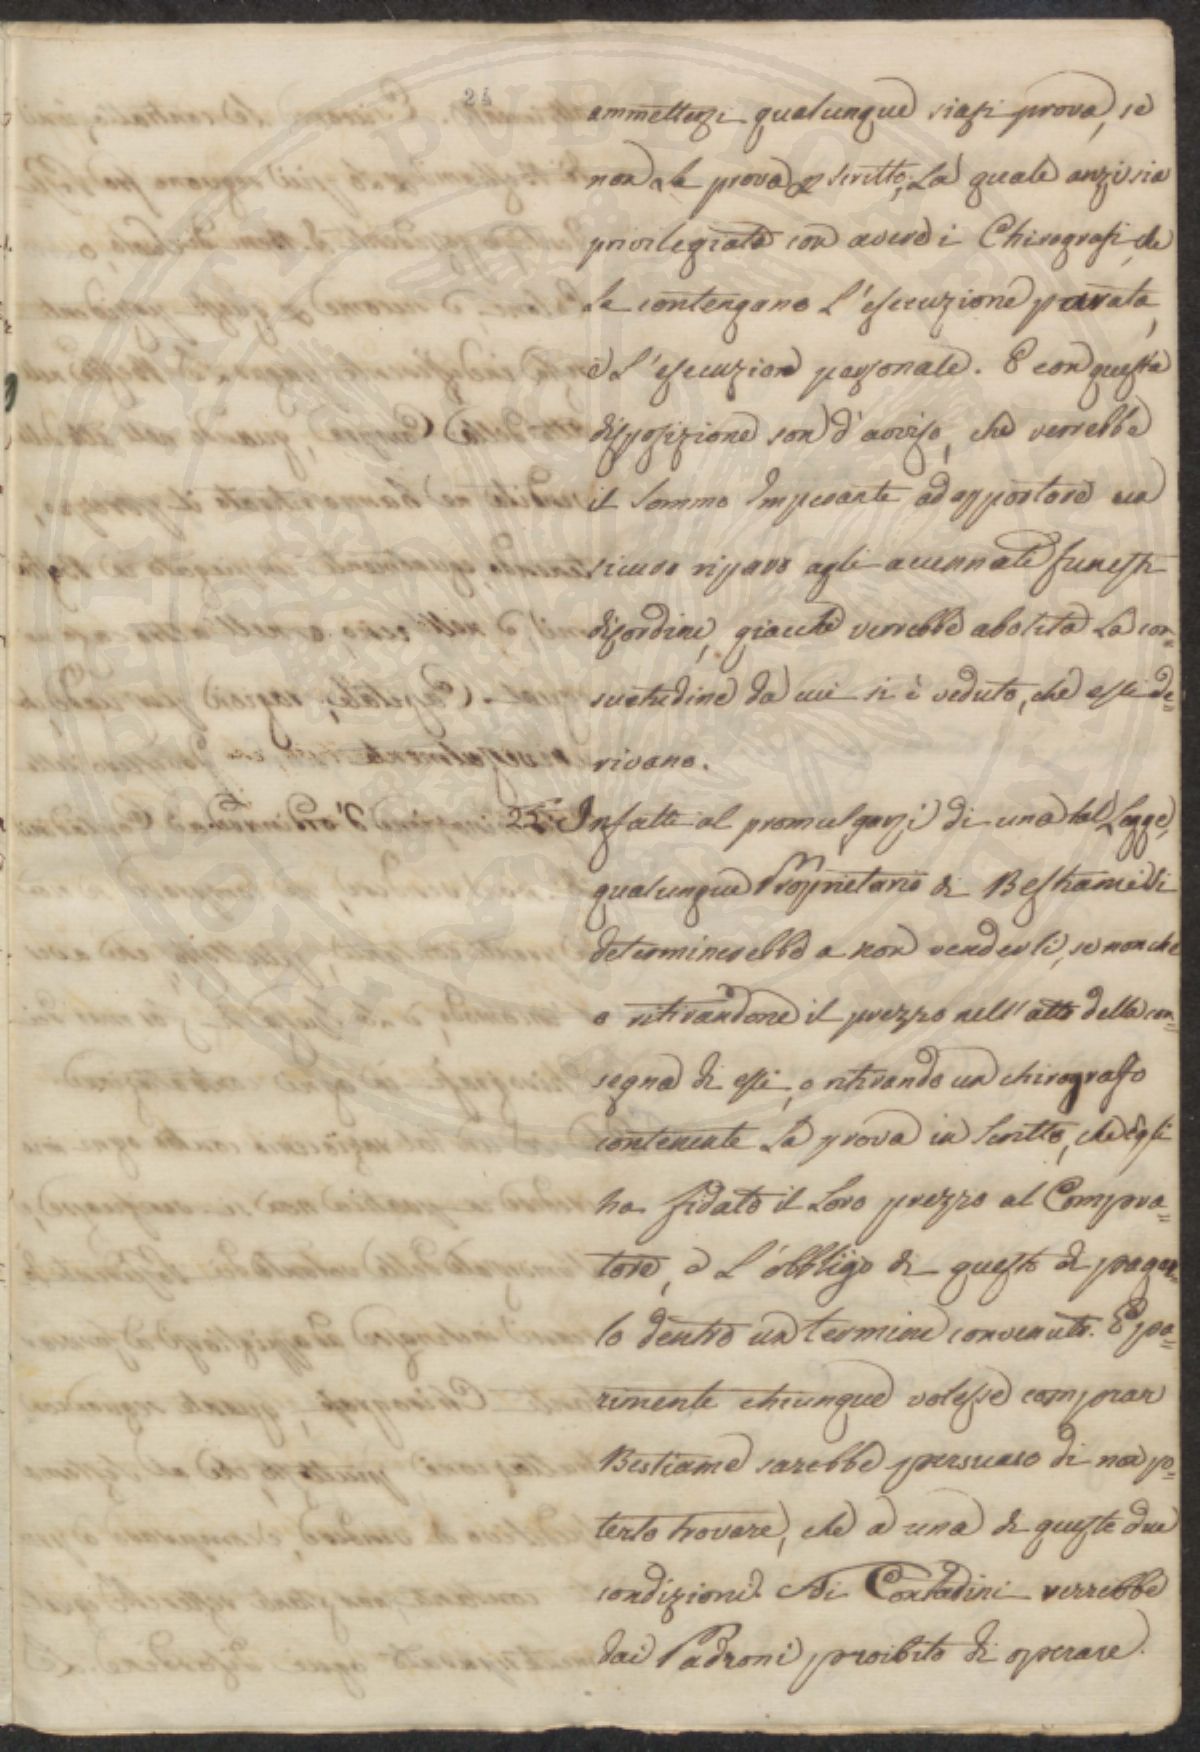 24
ammettersi qualunque siasi prova, se
non la prova p scritto; La quale anzi sia
privilegiata con avere i Chirografi, che
la contengano L'esecuzione parata,
e L'esecuzione personale. E con questa
disposizione son d'avviso, che verrebbe
il Sommo Imperante ad apportare un
sicuro riparo agli accennati funesti
disordini, giacchè verrebbe abolita La con=
suetudine da cui si è veduto, che essi de=
rivano.
22 Infatti al promulgarsi di una tal Legge,
qualunque Proprietario di Bestiame si
determinerebbe a non venderli, se non che
o ritirandone il prezzo nell'atto della con=
segna di essi, o ritirando un chirografo
contenente La prova in Scritto, che Egli
ha fidato il Loro prezzo al Compra=
tore, e L'obbligo di questo di pagar=
lo dentro un termine convenuto. E pa=
rimente chiunque volesse comprar
Bestiame sarebbe persuaso di non po=
terlo trovare, che a una di queste due
condizioni. Ai Contadini verrebbe
dai Padroni proibito di operare